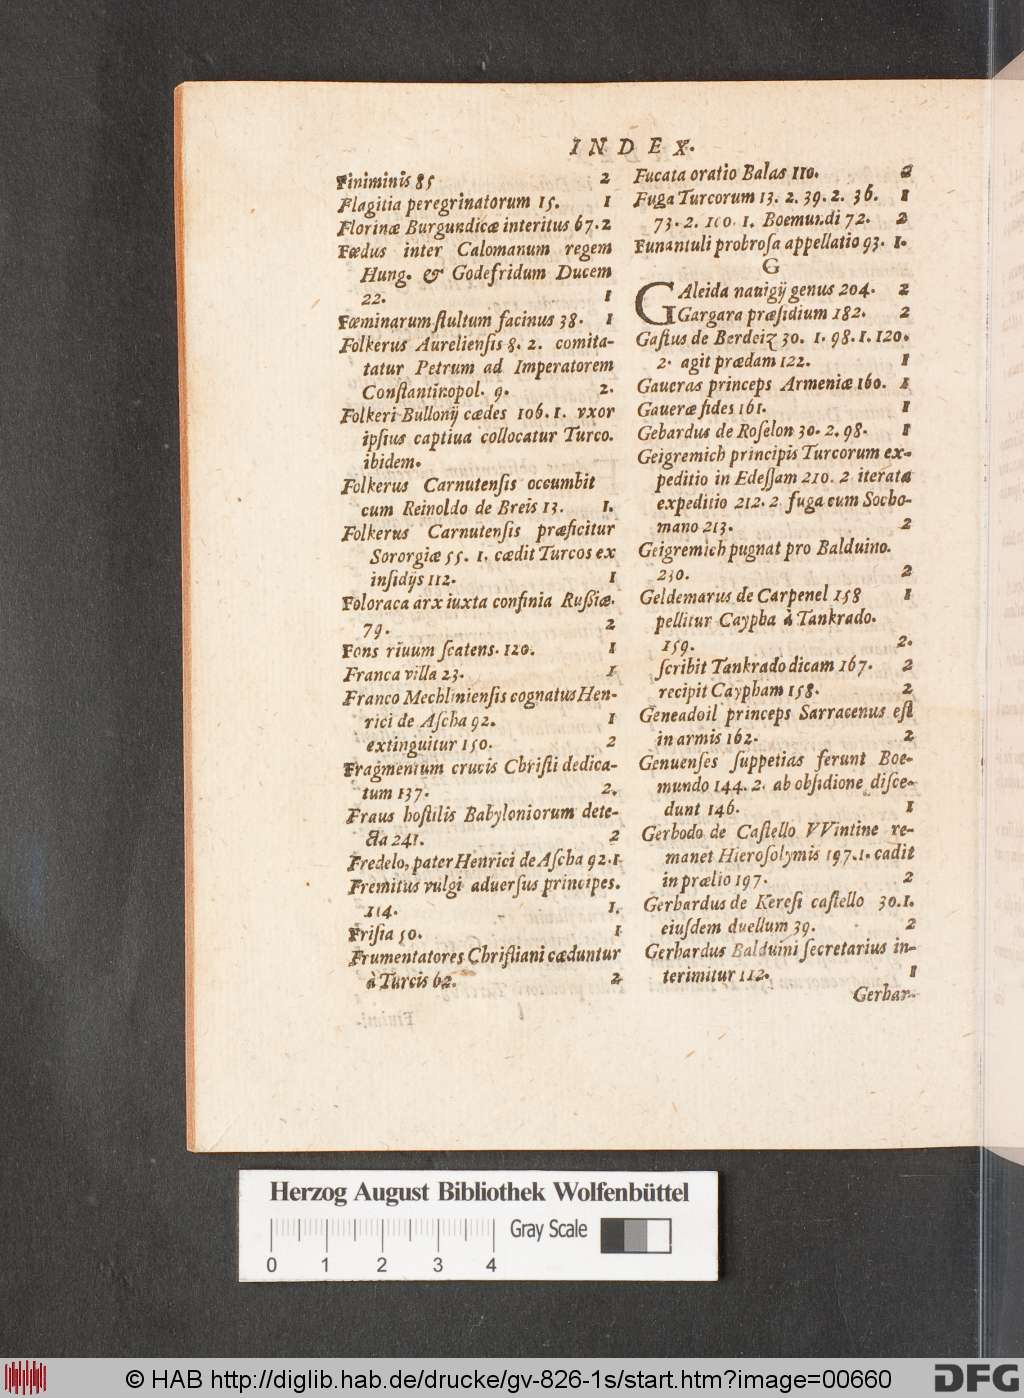 INDEX.
Finiminis 85 2
Flagitia peregrinatorum 15. 1
Florinæ Burgundicæ interitus 67. 2
Fœdus inter Calomanum regem
Hung. & Godefridum Ducem
22. 1
Fœminarum ſtultum facinus 38. 1
Folkerus Aurelienſis 8. 2. comita-
tatur Petrum ad Imperatorem
Conſtantinopol. 9. 2.
Folkeri Bullonij cædes 106. 1. vxor
ipſius captiua collocatur Turco.
ibidem.
Folkerus Carnutenſis occumbit
cum Reinoldo de Breis 13. 1.
Folkerus Carnutenſis præficitur
Sororgiæ 55. 1. cædit Turcos ex
inſidijs 112. 1
Foloraca arx iuxta confinia Ruſſiæ.
79. 2
Fons riuum ſcatens. 120. 1
Franca villa 23. 1
Franco Mechlinienſis cognatus Hen-
rici de Aſcha 92. 1
extinguitur 150. 2
Fragmentum crucis Chriſti dedica-
tum 137. 2.
Fraus hoſtilis Babyloniorum dete-
cta 241. 2
Fredelo, pater Henrici de Aſcha 92. 1
Fremitus vulgi aduerſus principes.
114. 1.
Friſia 50. 1
Frumentatores Chriſtiani cæduntur
à Turcis 62. 2
Fucata oratio Balas 110. 2
Fuga Turcorum 13. 2. 39. 2. 36. 1
73. 2. 100. 1. Boemundi 72. 2
Funantuli probroſa appellatio 93. 1.
G
GAleida nauigij genus 204. 2
Gargara præſidium 182. 2
Gaſtus de Berdeiz 30. 1. 98. 1. 120.
2. agit prædam 122. 1
Gaueras princeps Armeniæ 160. 1
Gaueræ fides 161. 1
Gebardus de Roſelon 30. 2. 98. 1
Geigremich principis Turcorum ex-
peditio in Edeſſam 210. 2 iterata
expeditio 212. 2 fuga cum Socho-
mano 213. 2
Geigremich pugnat pro Balduino.
230. 2
Geldemarus de Carpenel 158 1
pellitur Caypha à Tankrado.
159. 2.
ſcribit Tankrado dicam 167. 2
recipit Caypham 158. 2
Geneadoil princeps Sarracenus eſt
in armis 162. 2
Genuenſes ſuppetias ferunt Boe-
mundo 144. 2. ab obſidione diſce-
dunt 146. 1
Gerbodo de Caſtello VVintine re-
manet Hieroſolymis 197. 1. cadit
in prælio 197. 2
Gerhardus de Kereſi caſtello 30. 1.
eiuſdem duellum 39. 2
Gerhardus Balduini ſecretarius in-
terimitur 112. 1
Gerhar-
Herzog August Bibliothek Wolfenbüttel
Gray Scale
0 1 2 3 4
© HAB http://diglib.hab.de/drucke/gv-826-1s/start.htm?image=00660
DFG